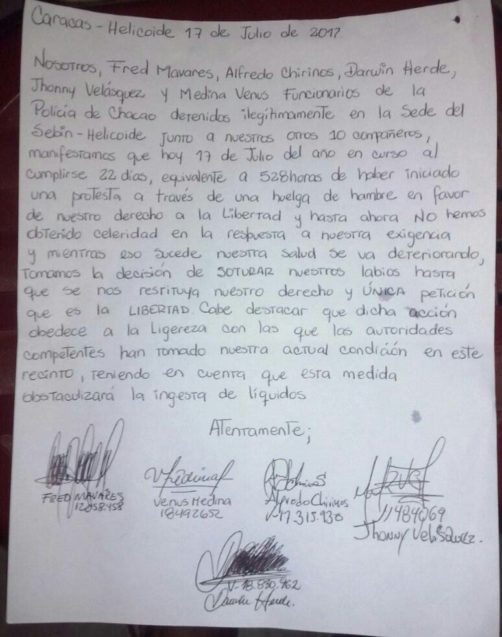 Caracas - Helicoide 17 de Julio de 2017
Nosotros, Fred Mavares, Alfredo Chirinos, Darwin Herde,
Jhonny Velásquez y Medina Venus Funcionarios de la
Policía de Chacao detenidos ilegítimamente en la Sede del
Sebin-Helicoide junto a nuestros otros 10 compañeros,
manifestamos que hoy 17 de Julio del año en curso al
cumplirse 22 días, equivalente a 528 horas de haber iniciado
una protesta a través de una huelga de hambre en favor
de nuestro derecho a la Libertad y hasta ahora NO hemos
obtenido celeridad en la respuesta a nuestra exigencia
y mientras eso sucede nuestra salud se va deteriorando,
Tomamos la decisión de SOTURAR nuestros labios hasta
que se nos restituya nuestro derecho y ÚNICA petición
que es la LIBERTAD. Cabe destacar que dicha acción
obedece a la Ligereza con las que las autoridades
competentes han tomado nuestra actual condición en este
recinto, teniendo en cuenta que esta medida
obstaculizará la ingesta de líquidos
Atentamente;
FRED MAVARES
12.058.458
Venus Medina
18492652
Alfredo Chirinos
V-17.315.930
11484069
Jhonny Velásquez.
V-18.830.962
Herde.